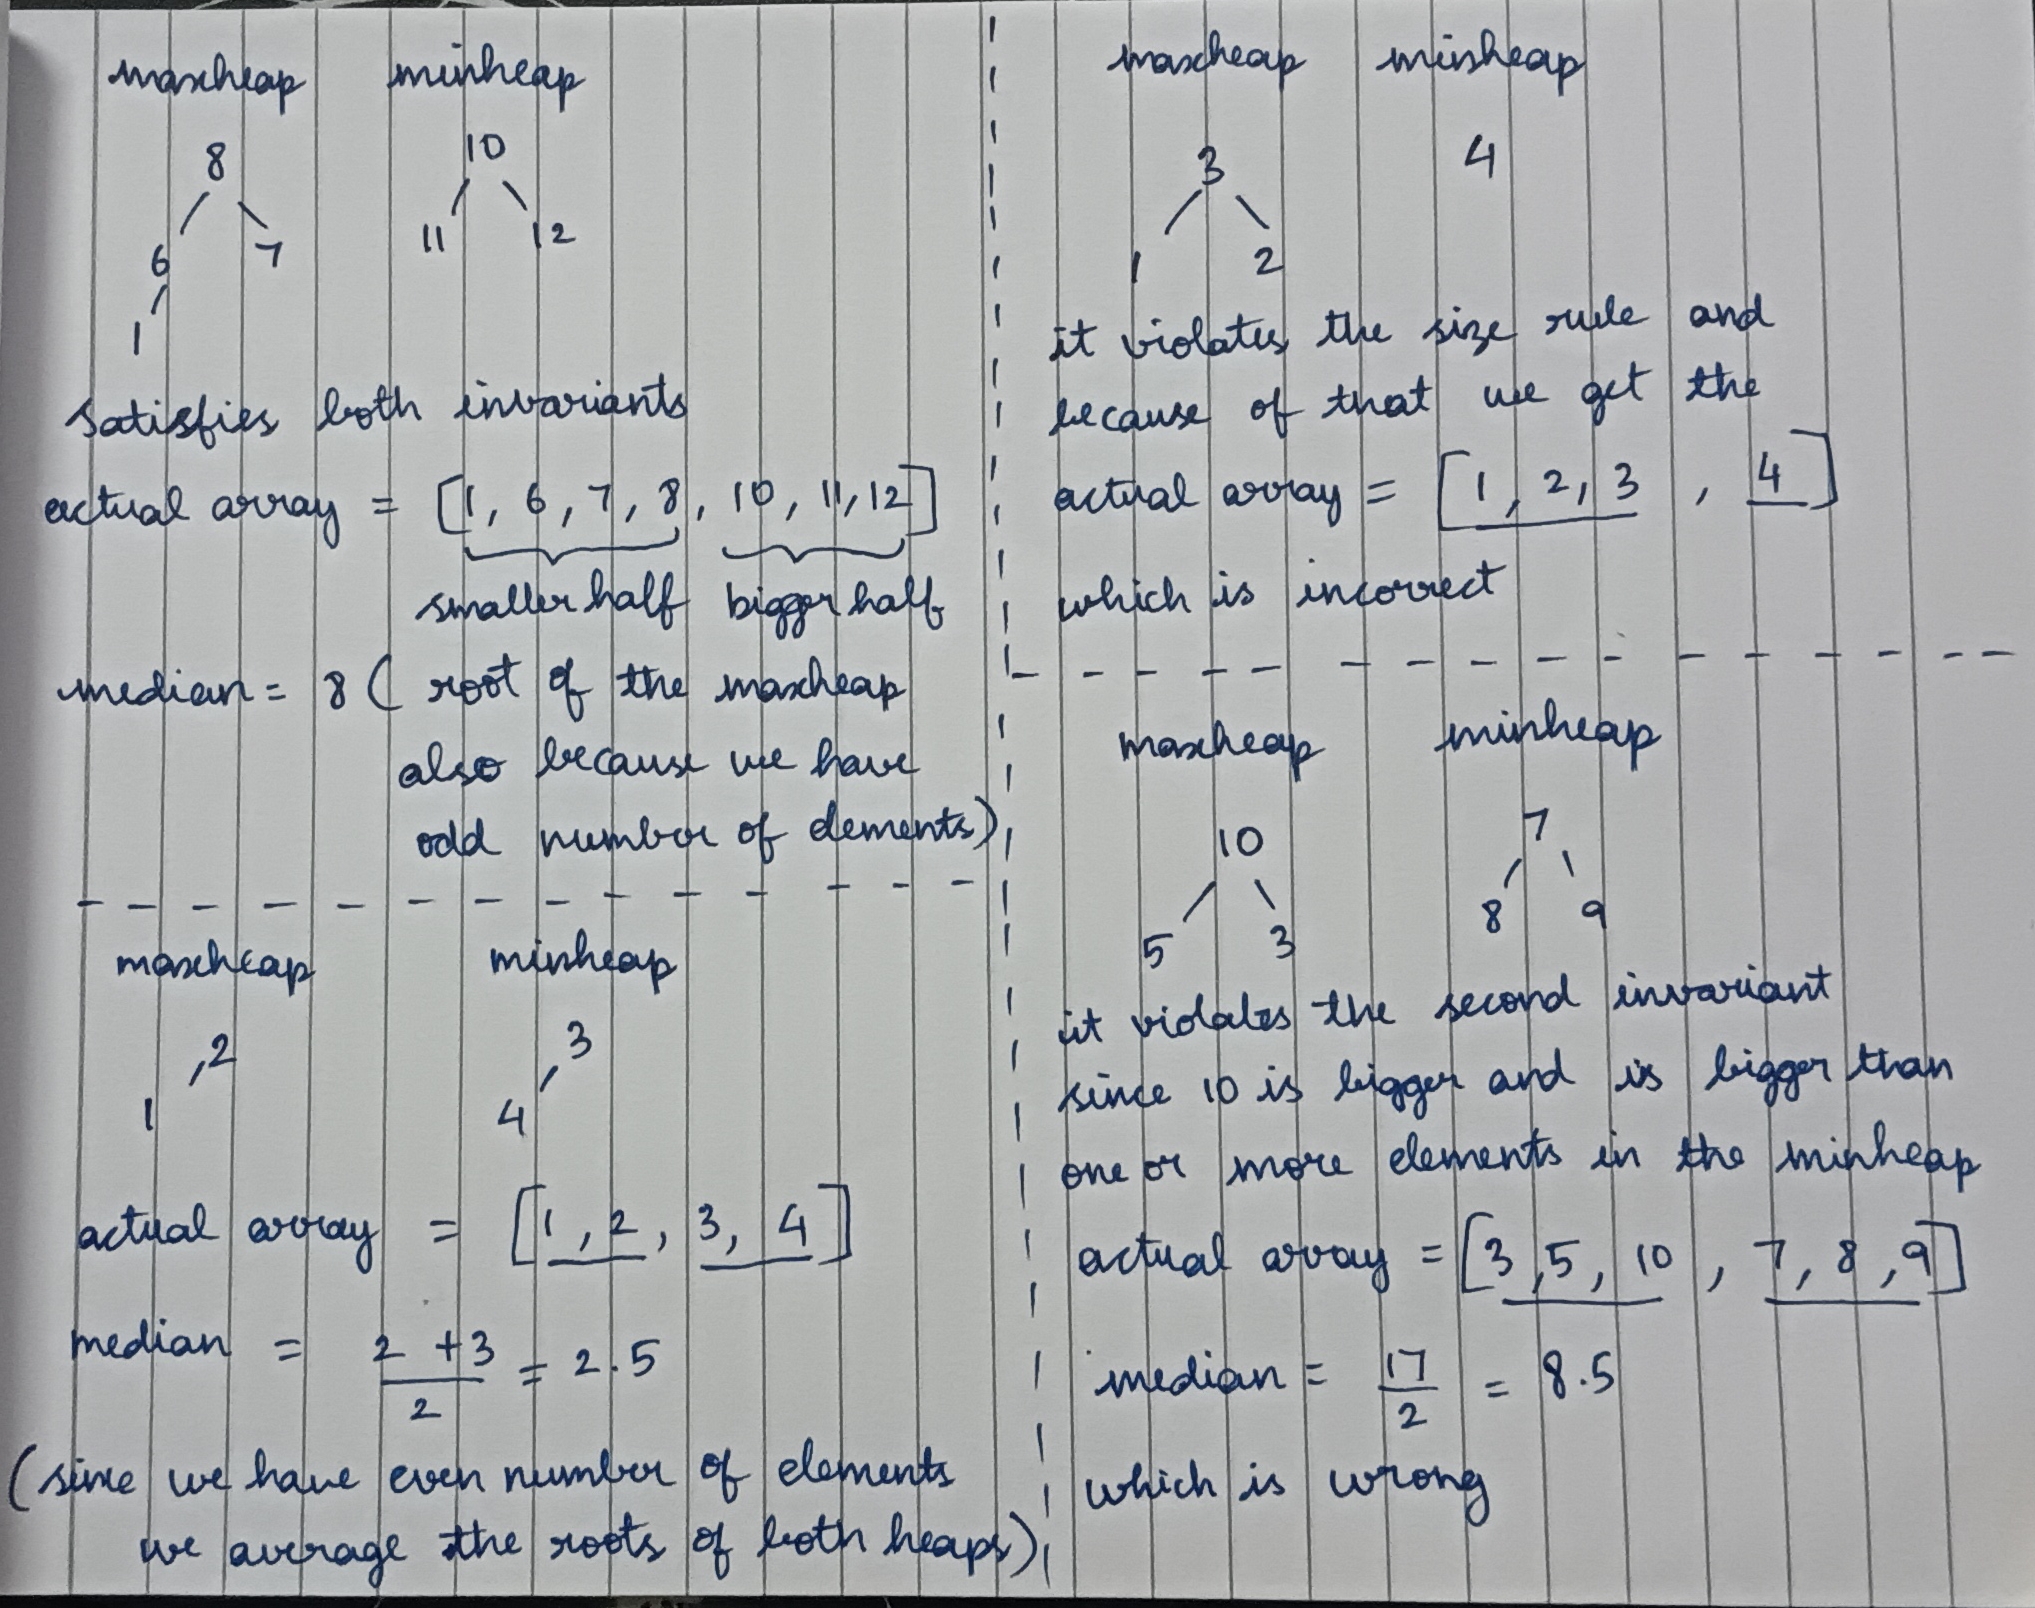 maxheap minheap
8 10
6 7 11 12
1
satisfies both invariants
actual array = [1, 6, 7, 8, 10, 11, 12]
smaller half bigger half
median = 8 ( root of the maxheap
also because we have
odd number of elements)
maxheap minheap
2 3
1 4
actual array = [1, 2, 3, 4]
median = 2 + 3 = 2.5
2
(since we have even number of elements
we average the roots of both heaps)
maxheap minheap
3 4
1 2
it violates the size rule and
because of that we get the
actual array = [1, 2, 3, 4]
which is incorrect
maxheap minheap
10 7
5 3 8 9
it violates the second invariant
since 10 is bigger and is bigger than
one or more elements in the minheap
actual array = [3, 5, 10, 7, 8, 9]
median = 17 = 8.5
2
which is wrong